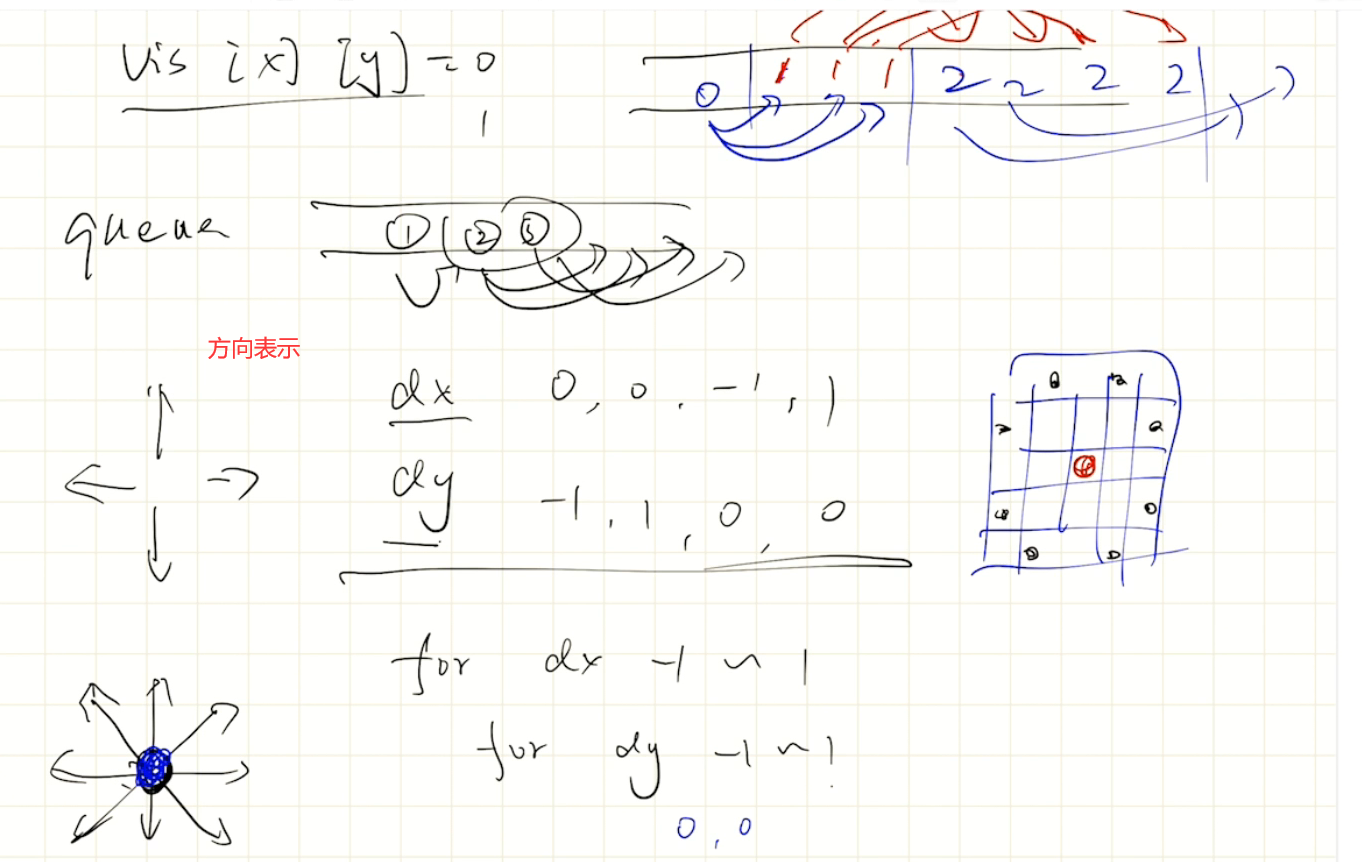 vis [x] [y] = 0
1
0 1 1 1 2 2 2 2
queue ① ② ③
方向表示
dx 0, 0, -1, 1
dy -1, 1, 0, 0
for dx -1 ~ 1
for dy -1 ~ 1
0, 0